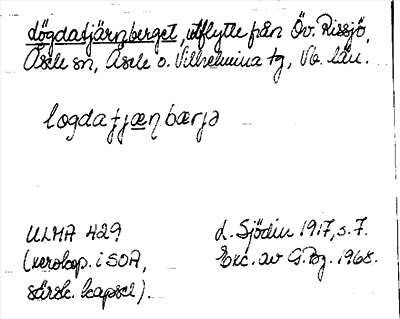 Lögdatjärnberget, utflytte från Öv. Rissjö,
Åsele sn, Åsele o. Vilhelmina tg, Vb. län.
logdatjæṇbærjə
ULMA 429
(xerokop. i SOA,
särsk. kapsel).
L. Sjödin 1917, s. 7.
Exc. av G. Pg. 1968.